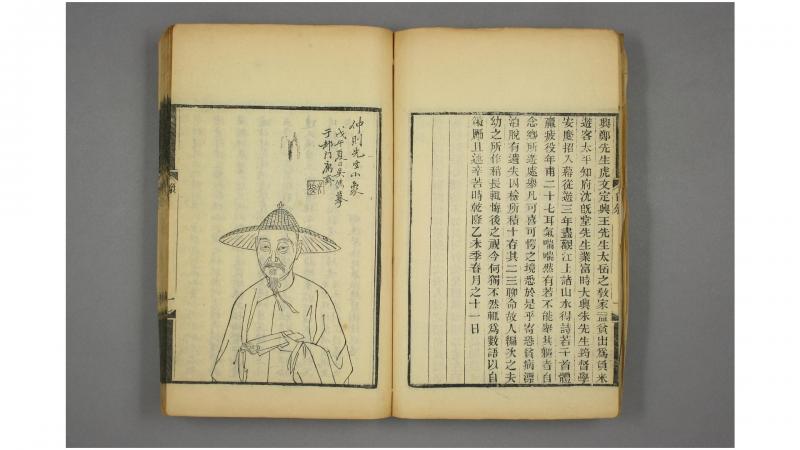 興鄭先生虎文定興王先生太岳之敎家益貧出爲負米
遊客太平知府沈旣堂先生業富時大興朱先生筠督學
安慶招入幕從遊三年盡觀江上諸山水得詩若干首體
羸疲役年甫二十七耳氣喘喘然有若不能舉其軀者自
念鄉所遊處舉凡可喜可愕之境悉於是乎寄恐貧病漂
泊脫有遺失因檢所積十存其二三聊命故人編次之夫
幼之所作稍長輒悔後之視今何獨不然輒爲數語以自
策勵且述辛苦時乾隆乙未季春月之十一日
仲則先生小象
戊午夏日吳儁摹
于都門